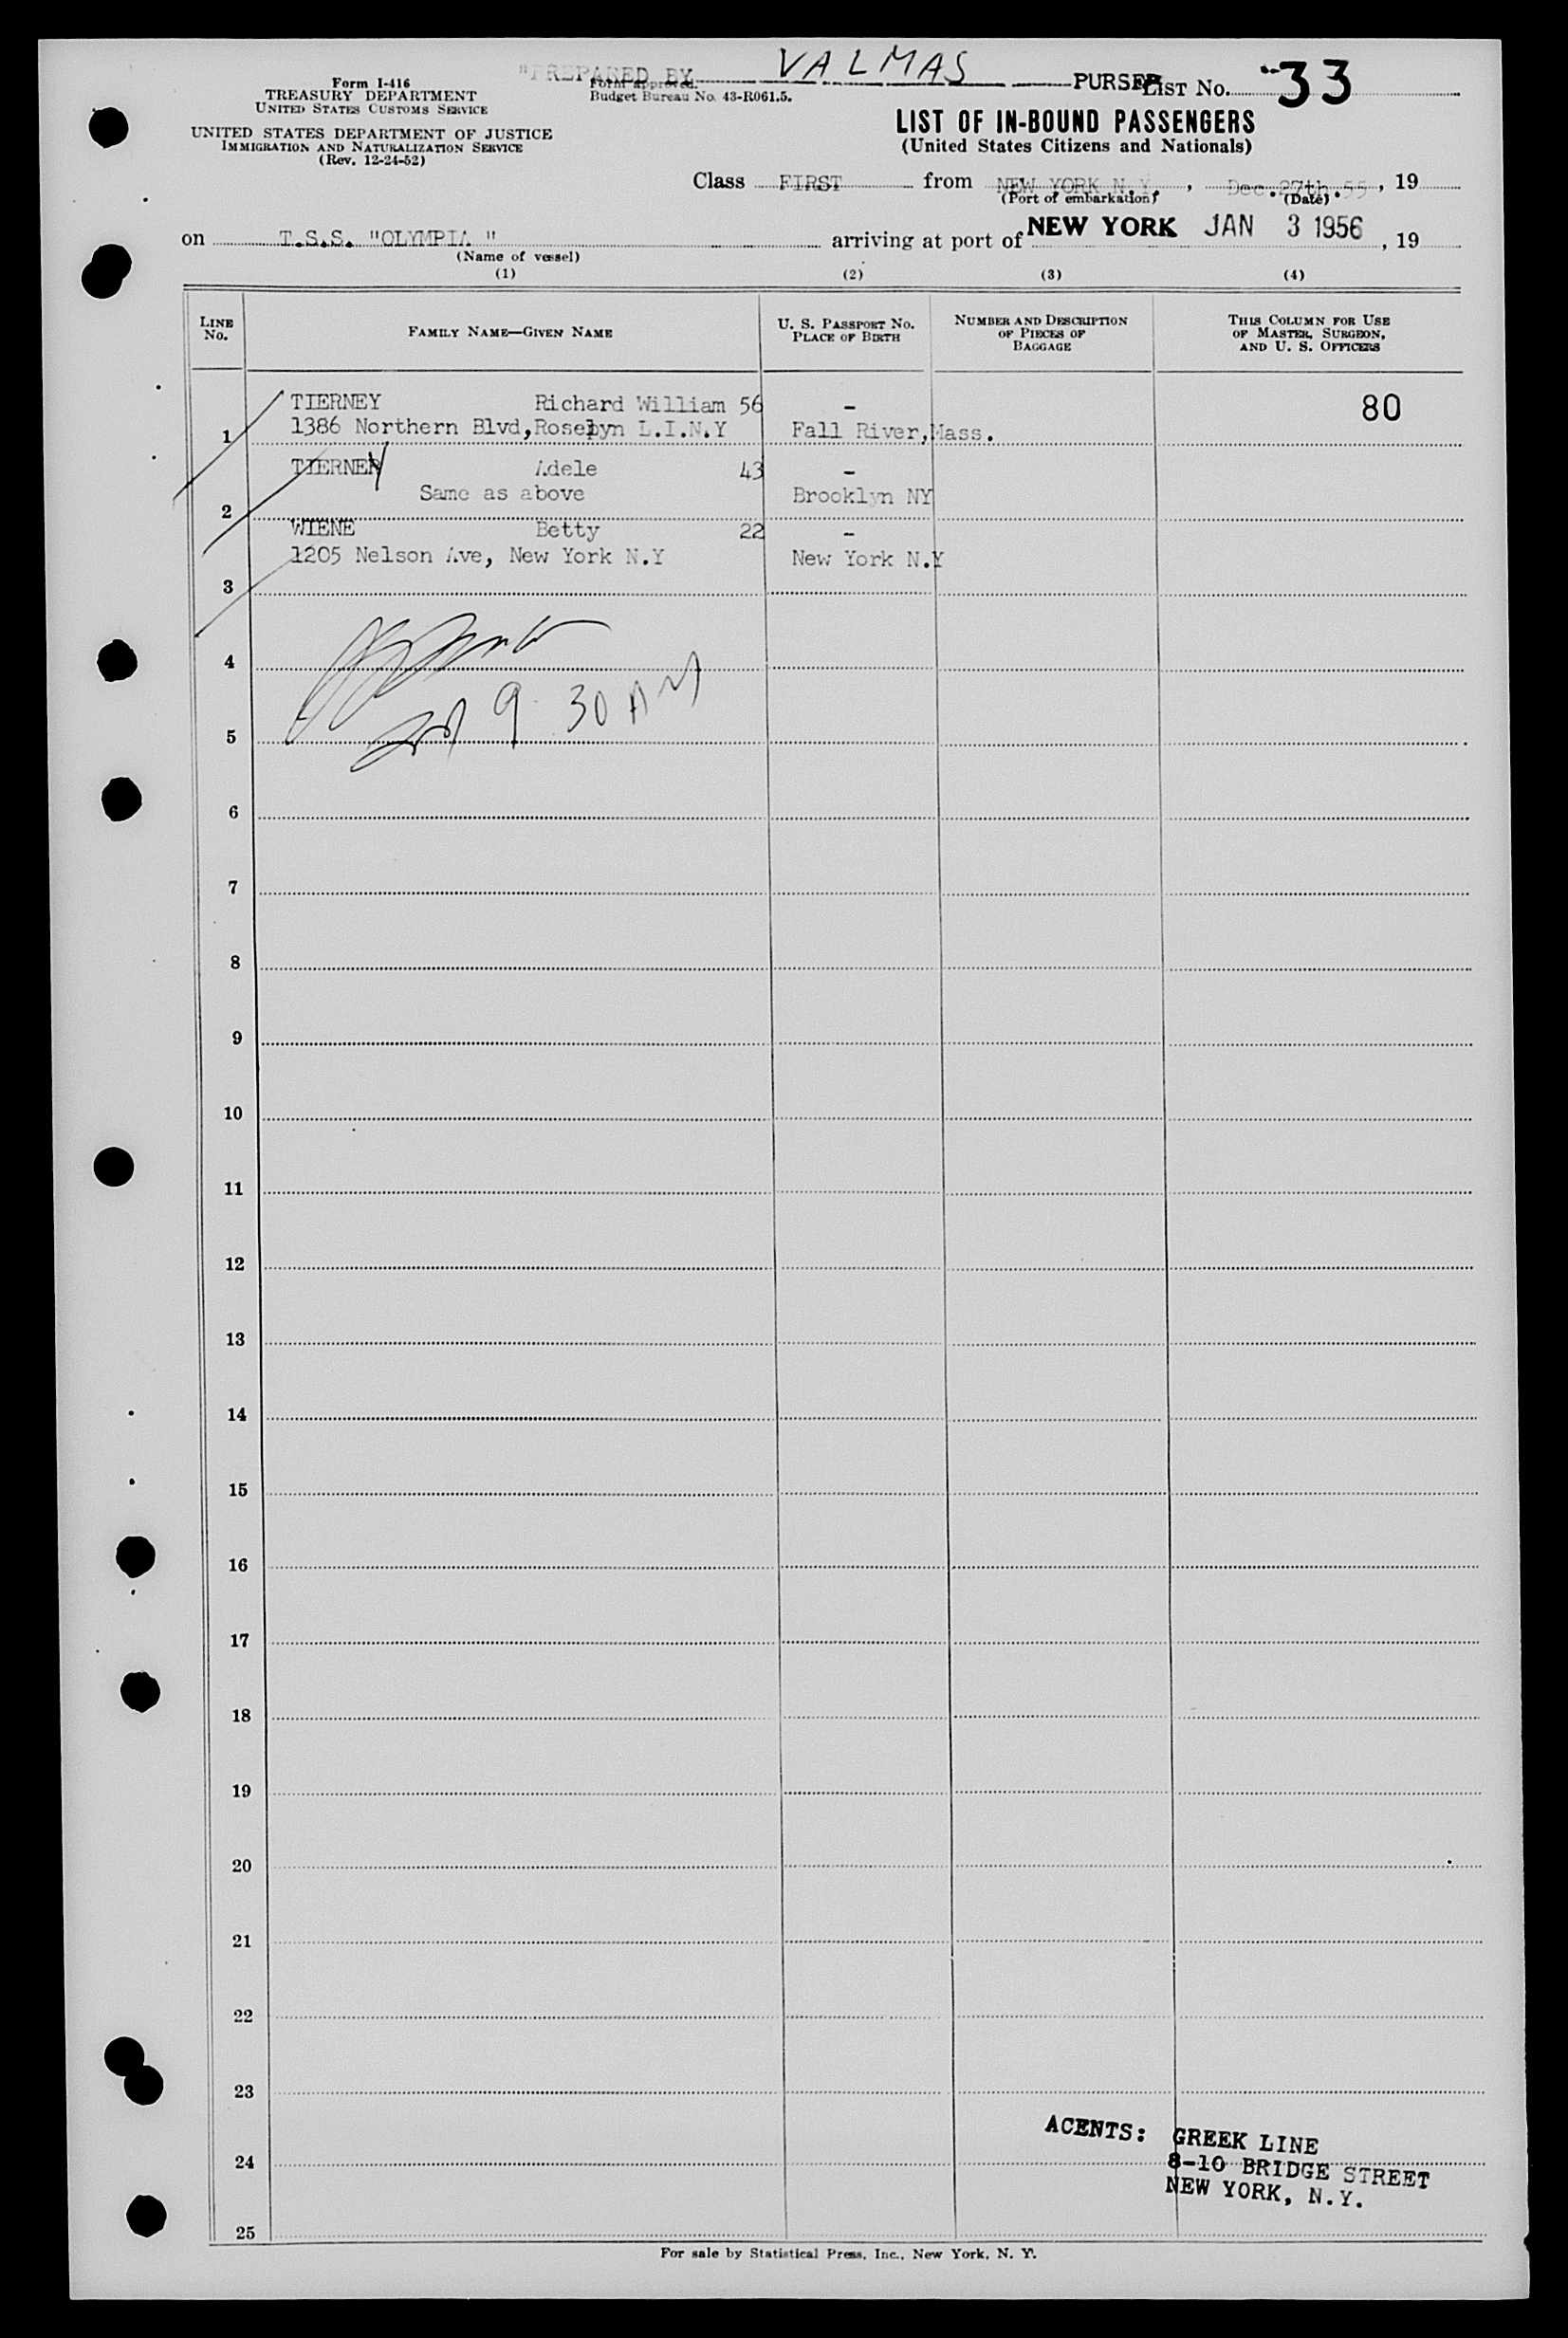 "PREPARED BY VALMAS PURSER
Form I-416
TREASURY DEPARTMENT
UNITED STATES CUSTOMS SERVICE
UNITED STATES DEPARTMENT OF JUSTICE
IMMIGRATION AND NATURALIZATION SERVICE
(Rev. 12-24-52)
Form approved.
Budget Bureau No. 43-R061.5.
LIST No. 33
LIST OF IN-BOUND PASSENGERS
(United States Citizens and Nationals)
Class FIRST from NEW YORK N.Y. , Dec.27th.55 , 19
(Port of embarkation) (Date)
on T.S.S. "OLYMPIA " arriving at port of NEW YORK JAN 3 1956 , 19
(Name of vessel)
(1) (2) (3) (4)
LINE NO. FAMILY NAME—GIVEN NAME U. S. PASSPORT NO. PLACE OF BIRTH NUMBER AND DESCRIPTION OF PIECES OF BAGGAGE THIS COLUMN FOR USE OF MASTER, SURGEON, AND U. S. OFFICERS
TIERNEY Richard William 56 - 80
1 1386 Northern Blvd, L.I.N.Y Fall River, Mass.
TIERNEY Adele 43 -
2 Same as above Brooklyn NY
WIENE Betty 22 -
3 1205 Nelson Ave, New York N.Y New York N.Y
4
5 9 30 AM
6
7
8
9
10
11
12
13
14
15
16
17
18
19
20
21
22
23
AGENTS: GREEK LINE
24 8-10 BRIDGE STREET
NEW YORK, N.Y.
25
For sale by Statistical Press, Inc., New York, N. Y.